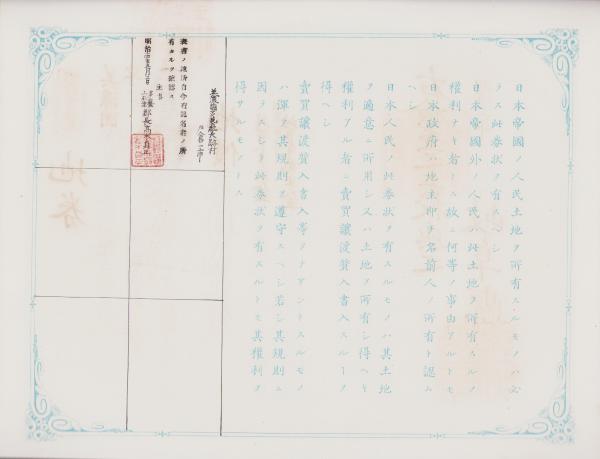 日本帝國ノ人民土地ヲ所有スルモノハ必
ラス此券状ヲ有スヘシ
日本帝國外ノ人民ハ此土地ヲ所有スルノ
權利ナキ者トス故ニ何等ノ事由アルトモ
日本政府ハ地主即チ名前人ノ所有ト認ム
ヘシ
日本人民ノ此券状ヲ有スルモノハ其土地
ヲ適意ニ所用シ又ハ土地ヲ所有シ得ヘキ
權利アル者ニ賣買讓渡質入書入スルヿヲ
得ヘシ
賣買讓渡質入書入等ヲナサントスルモノ
ハ渾テ其規則ヲ遵守スヘシ若シ其規則ニ
因ラスシテ此券状ヲ有スルトモ其權利ヲ
得サルモノトス
村
表書ノ
有 ヿヲ
明治
郡長高木
地券